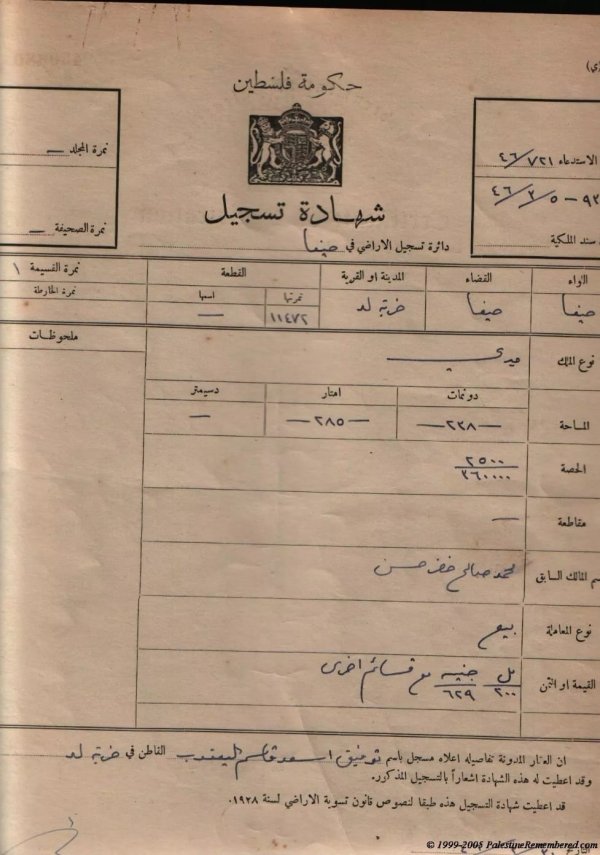 (ي
حكومة فلسطين
نمرة المجلد —
نمرة الصحيفة —
الاستدعاء ٤٦/٧٢١
سند الملكية
شهادة تسجيل
دائرة تسجيل الاراضي في حيفا
اللواء القضاء المدينة او القرية القطعة نمرة القسيمة ١
نمرتها اسمها نمرة الخارطة
حيفا حيفا خربة لد ١١٤٧٢ —
ملحوظات
نوع الملك ميري
دونمات امتار دسيمتر
المساحة —٢٣٨— —٢٨٥— —
الحصة ٢٥٠٠
٣٦٠٠٠٠
مقاطعة —
اسم المالك السابق محمد صالح خضر حسن
نوع المعاملة بيع
القيمة او الثمن مل جنيه مع قسائم اخرى
٢٠٠ ٦٢٩
ان العقار المدونة تفاصيله اعلاه مسجل باسم توفيق اسعد قاسم اليعقوب القاطن في خربة لد
وقد اعطيت له هذه الشهادة اشعاراً بالتسجيل المذكور.
قد اعطيت شهادة التسجيل هذه طبقا لنصوص قانون تسوية الاراضي لسنة ١٩٢٨.
© 1999-2005 PalestineRemembered.com